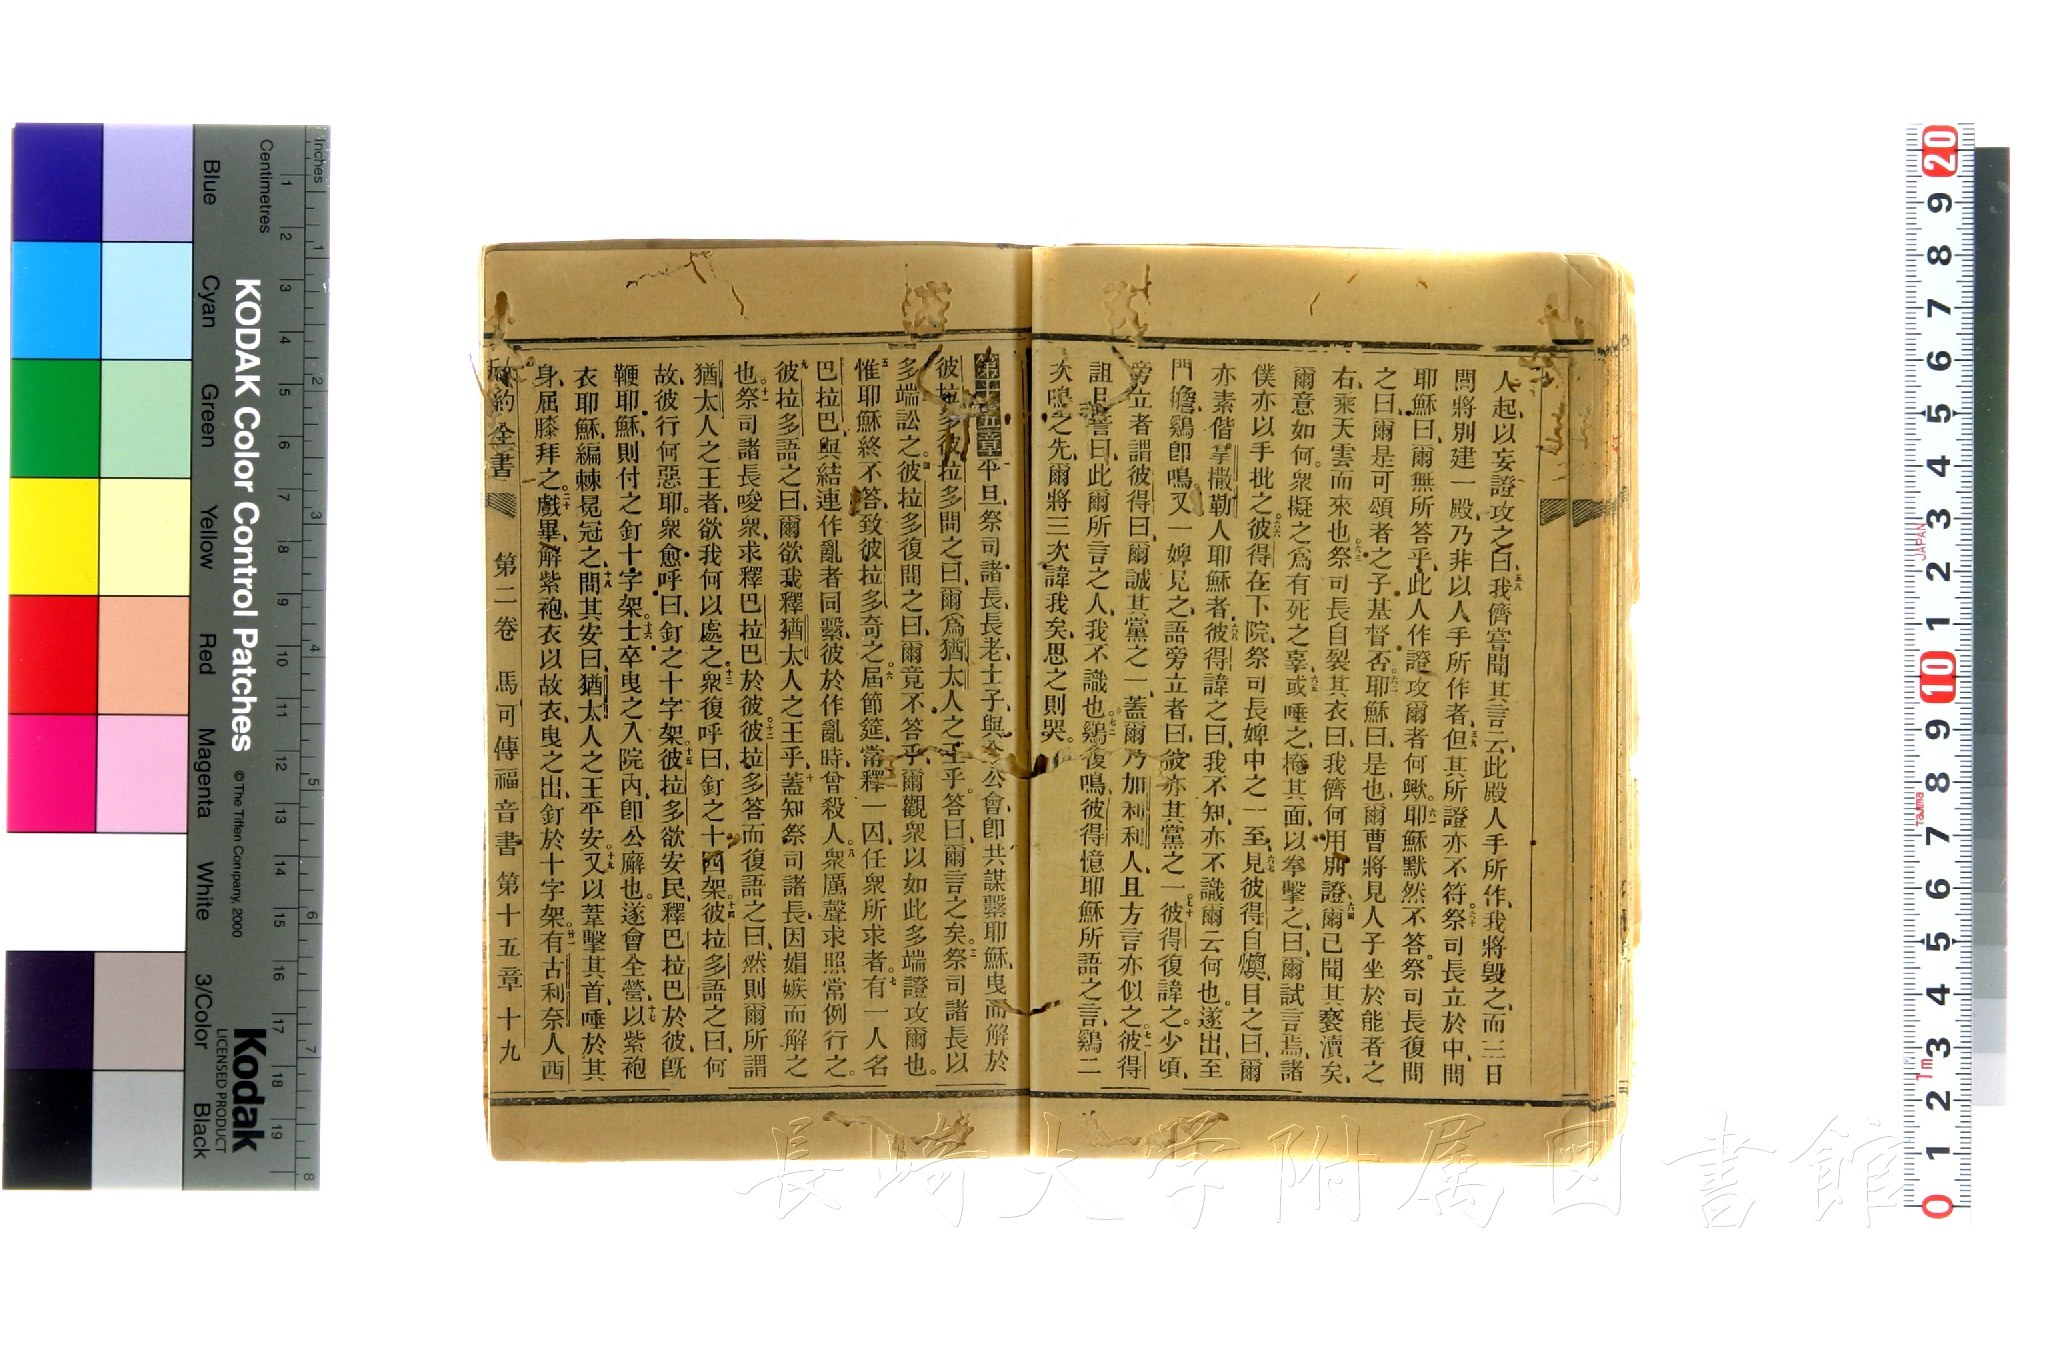 人起以妄證攻之曰五八我儕嘗聞其言云此殿人手所作我將毀之而三日
間將別建一殿乃非以人手所作者五九但其所證亦不符六十祭司長立於中問
耶穌曰爾無所答乎此人作證攻爾者何歟六一耶穌默然不答祭司長復問
之曰爾是可頌者之子基督否六二耶穌曰是也爾曹將見人子坐於能者之
右乘天雲而來也六三祭司長自裂其衣曰我儕何用別證六四爾已聞其褻瀆矣
爾意如何衆擬之爲有死之辜六五或唾之掩其面以拳擊之曰爾試言焉諸
僕亦以手批之六六彼得在下院祭司長婢中之一至六七見彼得自煖目之曰爾
亦素偕拿撒勒人耶穌者六八彼得諱之曰我不知亦不識爾云何也遂出至
門檐鷄卽鳴又一婢見之語旁立者曰彼亦其黨之一七十彼得復諱之少頃
旁立者謂彼得曰爾誠其黨之一蓋爾乃加利利人且方言亦似之七一彼得
詛且誓曰此爾所言之人我不識也七二鷄復鳴彼得憶耶穌所語之言鷄二
次鳴之先爾將三次諱我矣思之則哭
第十五章平旦祭司諸長長老士子與全公會卽共謀繫耶穌曳而解於
彼拉多二彼拉多問之曰爾爲猶太人之王乎答曰爾言之矣三祭司諸長以
多端訟之四彼拉多復問之曰爾竟不答乎爾觀衆以如此多端證攻爾也
五惟耶穌終不答致彼拉多奇之六屆節筵常釋一囚任衆所求者七有一人名
巴拉巴與結連作亂者同繫彼於作亂時曾殺人八衆厲聲求照常例行之
九彼拉多語之曰爾欲我釋猶太人之王乎十蓋知祭司諸長因娼嫉而解之
也十一祭司諸長唆衆求釋巴拉巴於彼十二彼拉多答而復語之曰然則爾所謂
猶太人之王者欲我何以處之十三衆復呼曰釘之十字架十四彼拉多語之曰何
故彼行何惡耶衆愈呼曰釘之十字架十五彼拉多欲安民釋巴拉巴於彼旣
鞭耶穌則付之釘十字架十六士卒曳之入院內卽公廨也遂會全營十七以紫袍
衣耶穌編棘冕冠之十八問其安曰猶太人之王平安十九又以葦擊其首唾於其
身屈膝拜之二十戲畢解紫袍衣以故衣曳之出釘於十字架廿一有古利奈人西
新約全書 第二卷 馬可傳福音書 第十五章 十九
Inches
Centimetres
Blue Cyan Green Yellow Red Magenta White 3/Color Black
KODAK Color Control Patches © The Tiffen Company, 2000
Kodak
LICENSED PRODUCT
JAPAN
Tajima
長崎大学附属図書館